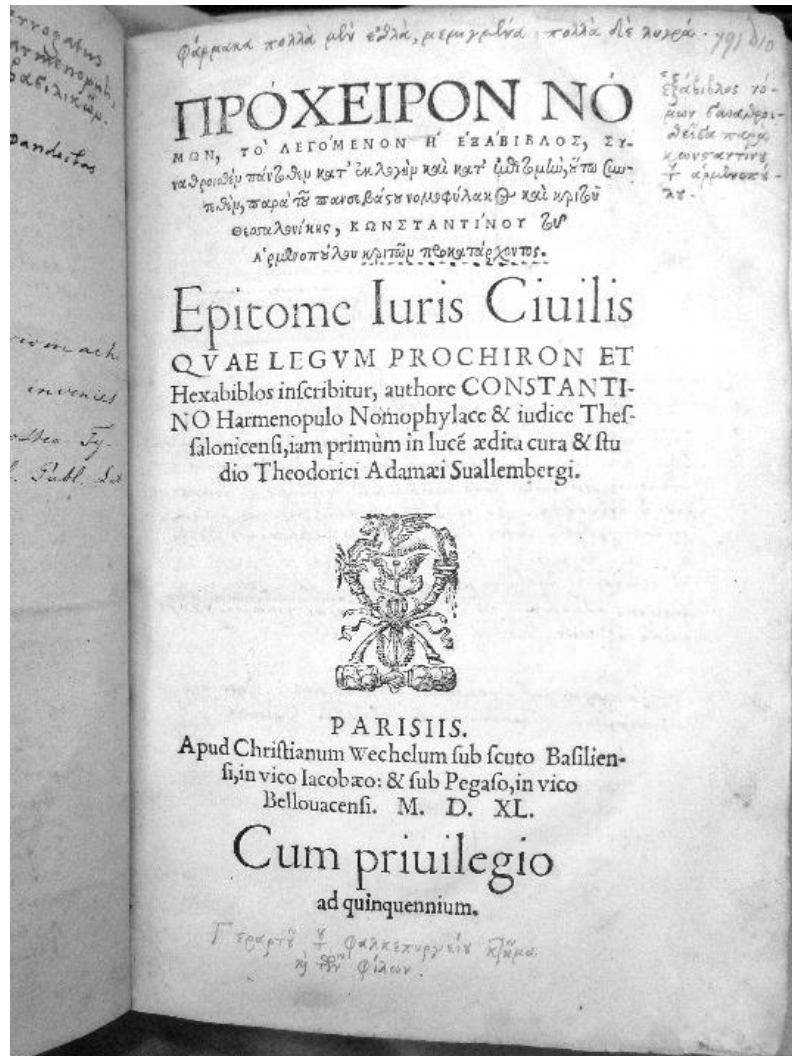 φάρμακα πολλὰ μὲν ἐσθλὰ, μεμιγμένα, πολλὰ δὲ λυγρά.
ΠΡΟΧΕΙΡΟΝ ΝΟ
ΜΩΝ, ΤΟ ΛΕΓΟΜΕΝΟΝ Η ΕΞΑΒΙΒΛΟΣ, ΣΥ-
παρὰ τοῦ πανσεβάςου νομοφύλακος καὶ κριτοῦ
Θεσσαλονίκης, ΚΩΝΣΤΑΝΤΙΝΟΥ τοῦ
Ἁρμενοπούλου κριτῶν προκατάρχοντος.
ἑξάβιβλος νό-
μων
παρὰ
κωνςαντίνου
τοῦ ἁρμενοπού-
λου.
Epitome Iuris Ciuilis
QVAE LEGVM PROCHIRON ET
Hexabiblos inſcribitur, authore CONSTANTI-
NO Harmenopulo Nomophylace & iudice Theſ-
ſalonicenſi, iam primùm in lucē ædita cura & ſtu
dio Theodorici Adamæi Suallembergi.
PARISIIS.
Apud Chriſtianum Wechelum ſub ſcuto Baſilien-
ſi, in vico Iacobæo: & ſub Pegaſo, in vico
Bellouacenſi. M. D. XL.
Cum priuilegio
ad quinquennium.
Γεράρτου τοῦ φαλκεπυργείου κτῆμα
καὶ τῶν φίλων.
pandectas
invenies